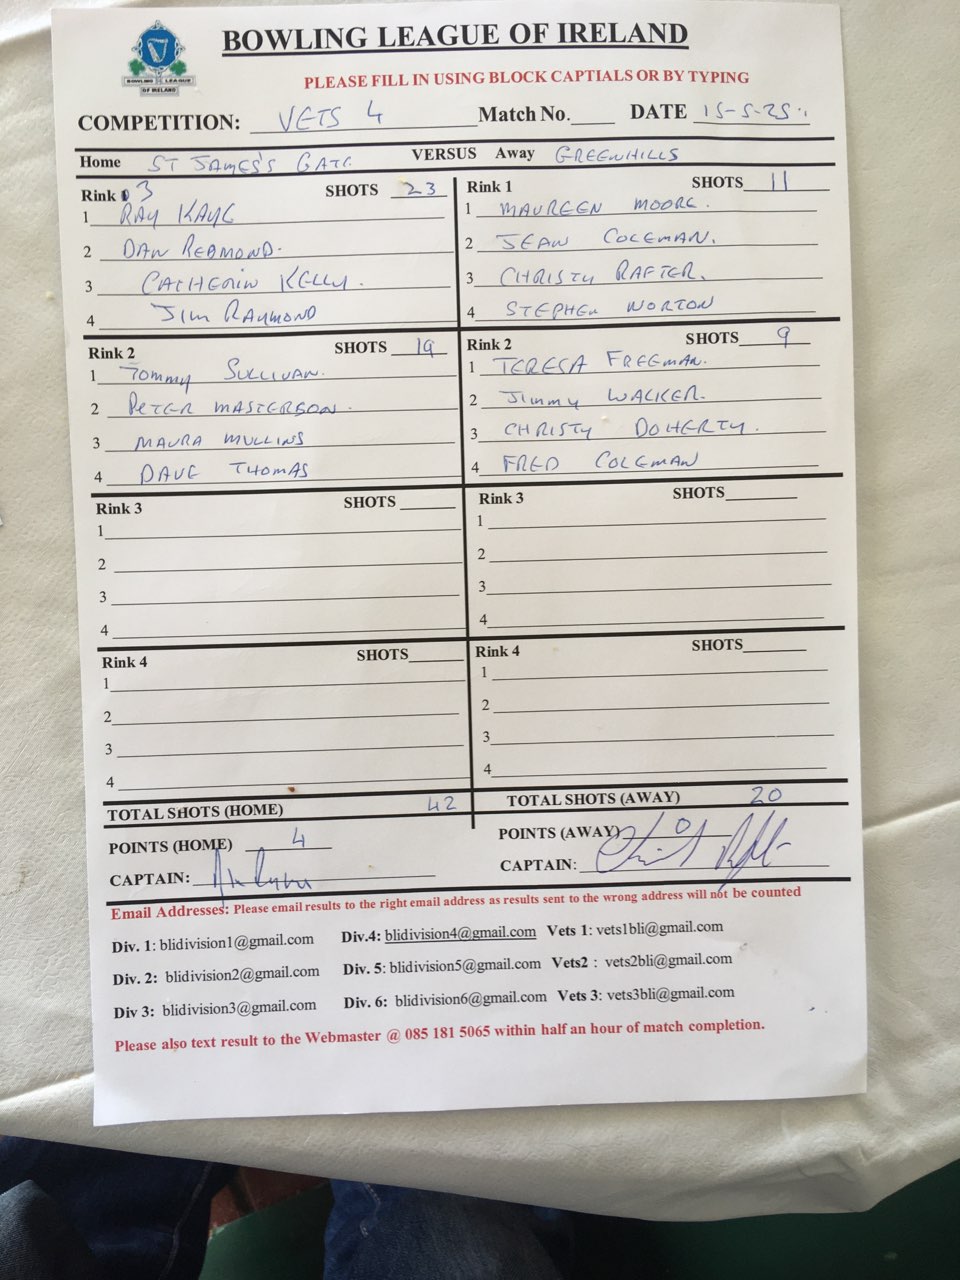 BOWLING LEAGUE OF IRELAND
BOWLING LEAGUE
OF IRELAND
PLEASE FILL IN USING BLOCK CAPTIALS OR BY TYPING
COMPETITION: VETS 4 Match No. DATE 15-5-25
Home ST JAMES'S GATE VERSUS Away GREENHILLS
Rink 3 SHOTS 23
1 RAY KAYE
2 DAN REDMOND.
3 CATHERIN KELLY.
4 JIM RAYMOND
Rink 1 SHOTS 11
1 MAUREEN MOORE.
2 JEAN COLEMAN.
3 CHRISTY RAFTER.
4 STEPHEN NORTON
Rink 2 SHOTS 19
1 TOMMY SULLIVAN.
2 PETER MASTERSON.
3 MAURA MULLINS
4 DAVE THOMAS
Rink 2 SHOTS 9
1 TERESA FREEMAN.
2 JIMMY WALKER.
3 CHRISTY DOHERTY.
4 FRED COLEMAN
Rink 3 SHOTS
1
2
3
4
Rink 3 SHOTS
1
2
3
4
Rink 4 SHOTS
1
2
3
4
Rink 4 SHOTS
1
2
3
4
TOTAL SHOTS (HOME) 42 TOTAL SHOTS (AWAY) 20
POINTS (HOME) 4 POINTS (AWAY) 0
CAPTAIN: CAPTAIN:
Email Addresses: Please email results to the right email address as results sent to the wrong address will not be counted
Div. 1: blidivision1@gmail.com Div.4: blidivision4@gmail.com Vets 1: vets1bli@gmail.com
Div. 2: blidivision2@gmail.com Div. 5: blidivision5@gmail.com Vets2 : vets2bli@gmail.com
Div 3: blidivision3@gmail.com Div. 6: blidivision6@gmail.com Vets 3: vets3bli@gmail.com
Please also text result to the Webmaster @ 085 181 5065 within half an hour of match completion.